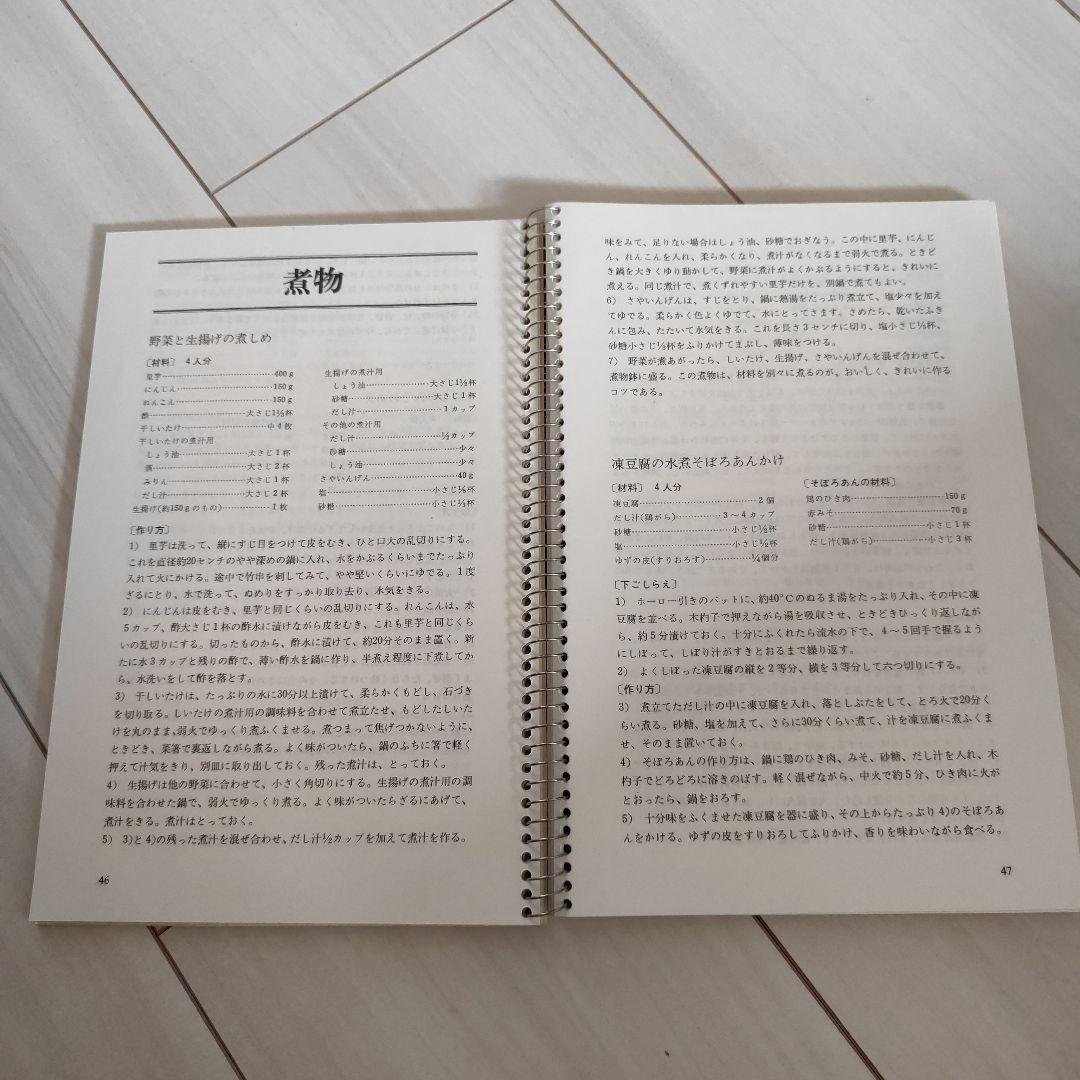 煮物
野菜と生揚げの煮しめ
〔材料〕 4人分
里芋…400g
にんじん…150g
れんこん…150g
酢…大さじ1⅓杯
干しいたけ…中4枚
干しいたけの煮汁用
しょう油…大さじ1杯
酒…大さじ2杯
みりん…大さじ1杯
だし汁…大さじ2杯
生揚げ(約150gのもの)…1枚
生揚げの煮汁用
しょう油…大さじ1½杯
砂糖…大さじ1杯
だし汁…1カップ
その他の煮汁用
だし汁…½カップ
砂糖…少々
しょう油…少々
さやいんげん…40g
塩…小さじ⅓杯
砂糖…小さじ⅓杯
〔作り方〕
1) 里芋は洗って、縦にすじ目をつけて皮をむき、ひと口大の乱切りにする。
これを直径約20センチのやや深めの鍋に入れ、水をかぶるくらいまでたっぷり
入れて火にかける。途中で竹串を刺してみて、やや堅いくらいにゆでる。1度
ざるにとり、水で洗って、ぬめりをすっかり取り去り、水気をきる。
2) にんじんは皮をむき、里芋と同じくらいの乱切りにする。れんこんは、水
5カップ、酢大さじ1杯の酢水に漬けながら皮をむき、これも里芋と同じくら
いの乱切りにする。切ったものから、酢水に漬けて、約20分そのまま置く。新
たに水3カップと残りの酢で、薄い酢水を鍋に作り、半煮え程度に下煮してか
ら、水洗いをして酢を落とす。
3) 干しいたけは、たっぷりの水に30分以上漬けて、柔らかくもどし、石づき
を切り取る。しいたけの煮汁用の調味料を合わせて煮立たせ、もどしたしいた
けを丸のまま、弱火でゆっくり煮ふくませる。煮つまって焦げつかないように、
ときどき、菜箸で裏返しながら煮る。よく味がついたら、鍋のふちに箸で軽く
押えて汁気をきり、別皿に取り出しておく。残った煮汁は、とっておく。
4) 生揚げは他の野菜に合わせて、小さく角切りにする。生揚げの煮汁用の調
味料を合わせた鍋で、弱火でゆっくり煮る。よく味がついたらざるにあげて、
煮汁をきる。煮汁はとっておく。
5) 3)と4)の残った煮汁を混ぜ合わせ、だし汁½カップを加えて煮汁を作る。
46
味をみて、足りない場合はしょう油、砂糖でおぎなう。この中に里芋、にんじ
ん、れんこんを入れ、柔らかくなり、煮汁がなくなるまで弱火で煮る。ときど
き鍋を大きくゆり動かして、野菜に煮汁がよくかぶるようにすると、きれいに
煮える。同じ煮汁で、煮くずれやすい里芋だけを、別鍋で煮てもよい。
6) さやいんげんは、すじをとり、鍋に熱湯をたっぷり煮立て、塩少々を加え
てゆでる。柔らかく色よくゆでて、水にとってさます。さめたら、乾いたふき
んに包み、たたいて水気をきる。これを長さ3センチに切り、塩小さじ⅓杯、
砂糖小さじ⅓杯をふりかけてまぶし、薄味をつける。
7) 野菜が煮あがったら、しいたけ、生揚げ、さやいんげんを混ぜ合わせて、
煮物鉢に盛る。この煮物は、材料を別々に煮るのが、おいしく、きれいに作る
コツである。
凍豆腐の水煮そぼろあんかけ
〔材料〕 4人分
凍豆腐…2個
だし汁(鶏がら)…3〜4カップ
砂糖…小さじ½杯
塩…小さじ½杯
ゆずの皮(すりおろす)…¼個分
〔そぼろあんの材料〕
鶏のひき肉…150g
赤みそ…70g
砂糖…小さじ1杯
だし汁(鶏がら)…小さじ3杯
〔下ごしらえ〕
1) ホーロー引きのバットに、約40°Cのぬるま湯をたっぷり入れ、その中に凍
豆腐を並べる。木杓子で押えながら湯を吸収させ、ときどきひっくり返しなが
ら、約5分漬けておく。十分にふくれたら流水の下で、4〜5回手で握るよう
にしぼって、しぼり汁がすきとおるまで繰り返す。
2) よくしぼった凍豆腐の縦を2等分、横を3等分して六つ切りにする。
〔作り方〕
3) 煮立てただし汁の中に凍豆腐を入れ、落としぶたをして、とろ火で20分く
らい煮る。砂糖、塩を加えて、さらに30分くらい煮て、汁を凍豆腐に煮ふくま
せ、そのまま置いておく。
4) そぼろあんの作り方は、鍋に鶏のひき肉、みそ、砂糖、だし汁を入れ、木
杓子でどろどろに溶きのばす。軽く混ぜながら、中火で約5分、ひき肉に火が
とおったら、鍋をおろす。
5) 十分味をふくませた凍豆腐を器に盛り、その上からたっぷり4)のそぼろあ
んをかける。ゆずの皮をすりおろしてふりかけ、香りを味わいながら食べる。
47